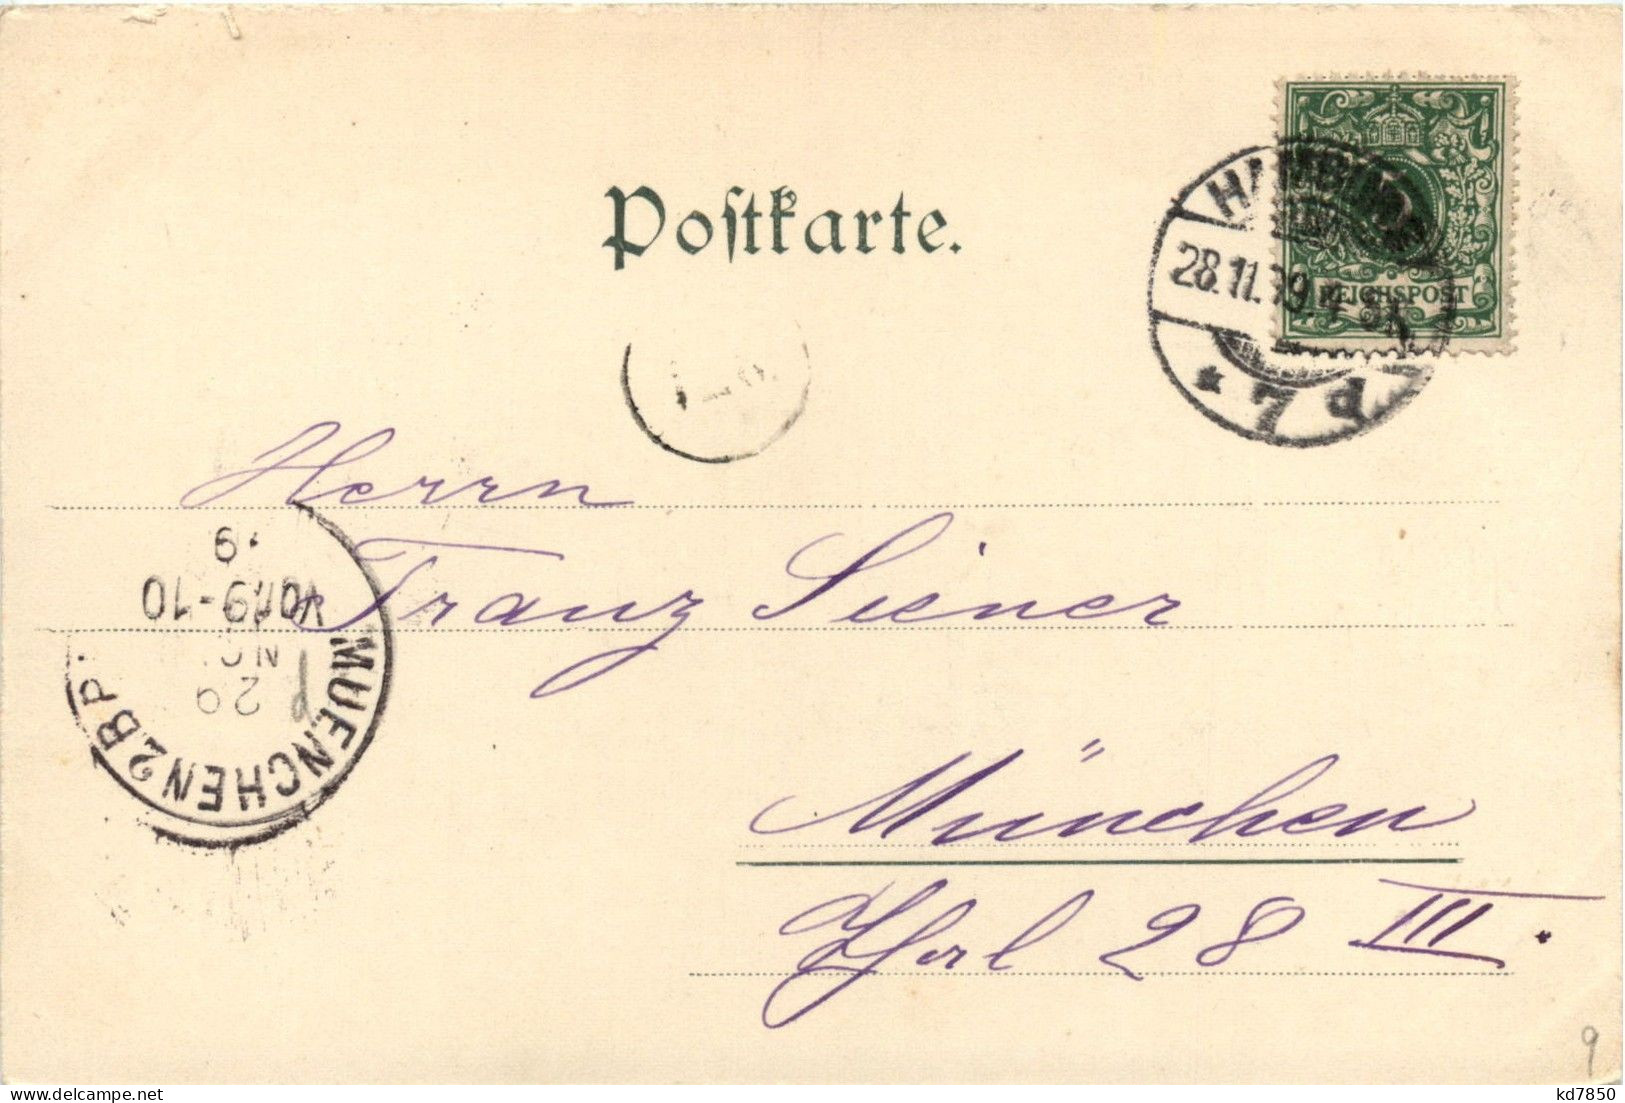 Postkarte.
HAMBURG
28.11.99. 4
REICHSPOST
* 7 d
Herrn
Franz Siener
München
28 III.
MUENCHEN 2 B.P.
29
NO
VOR 9-10
9
kd7850